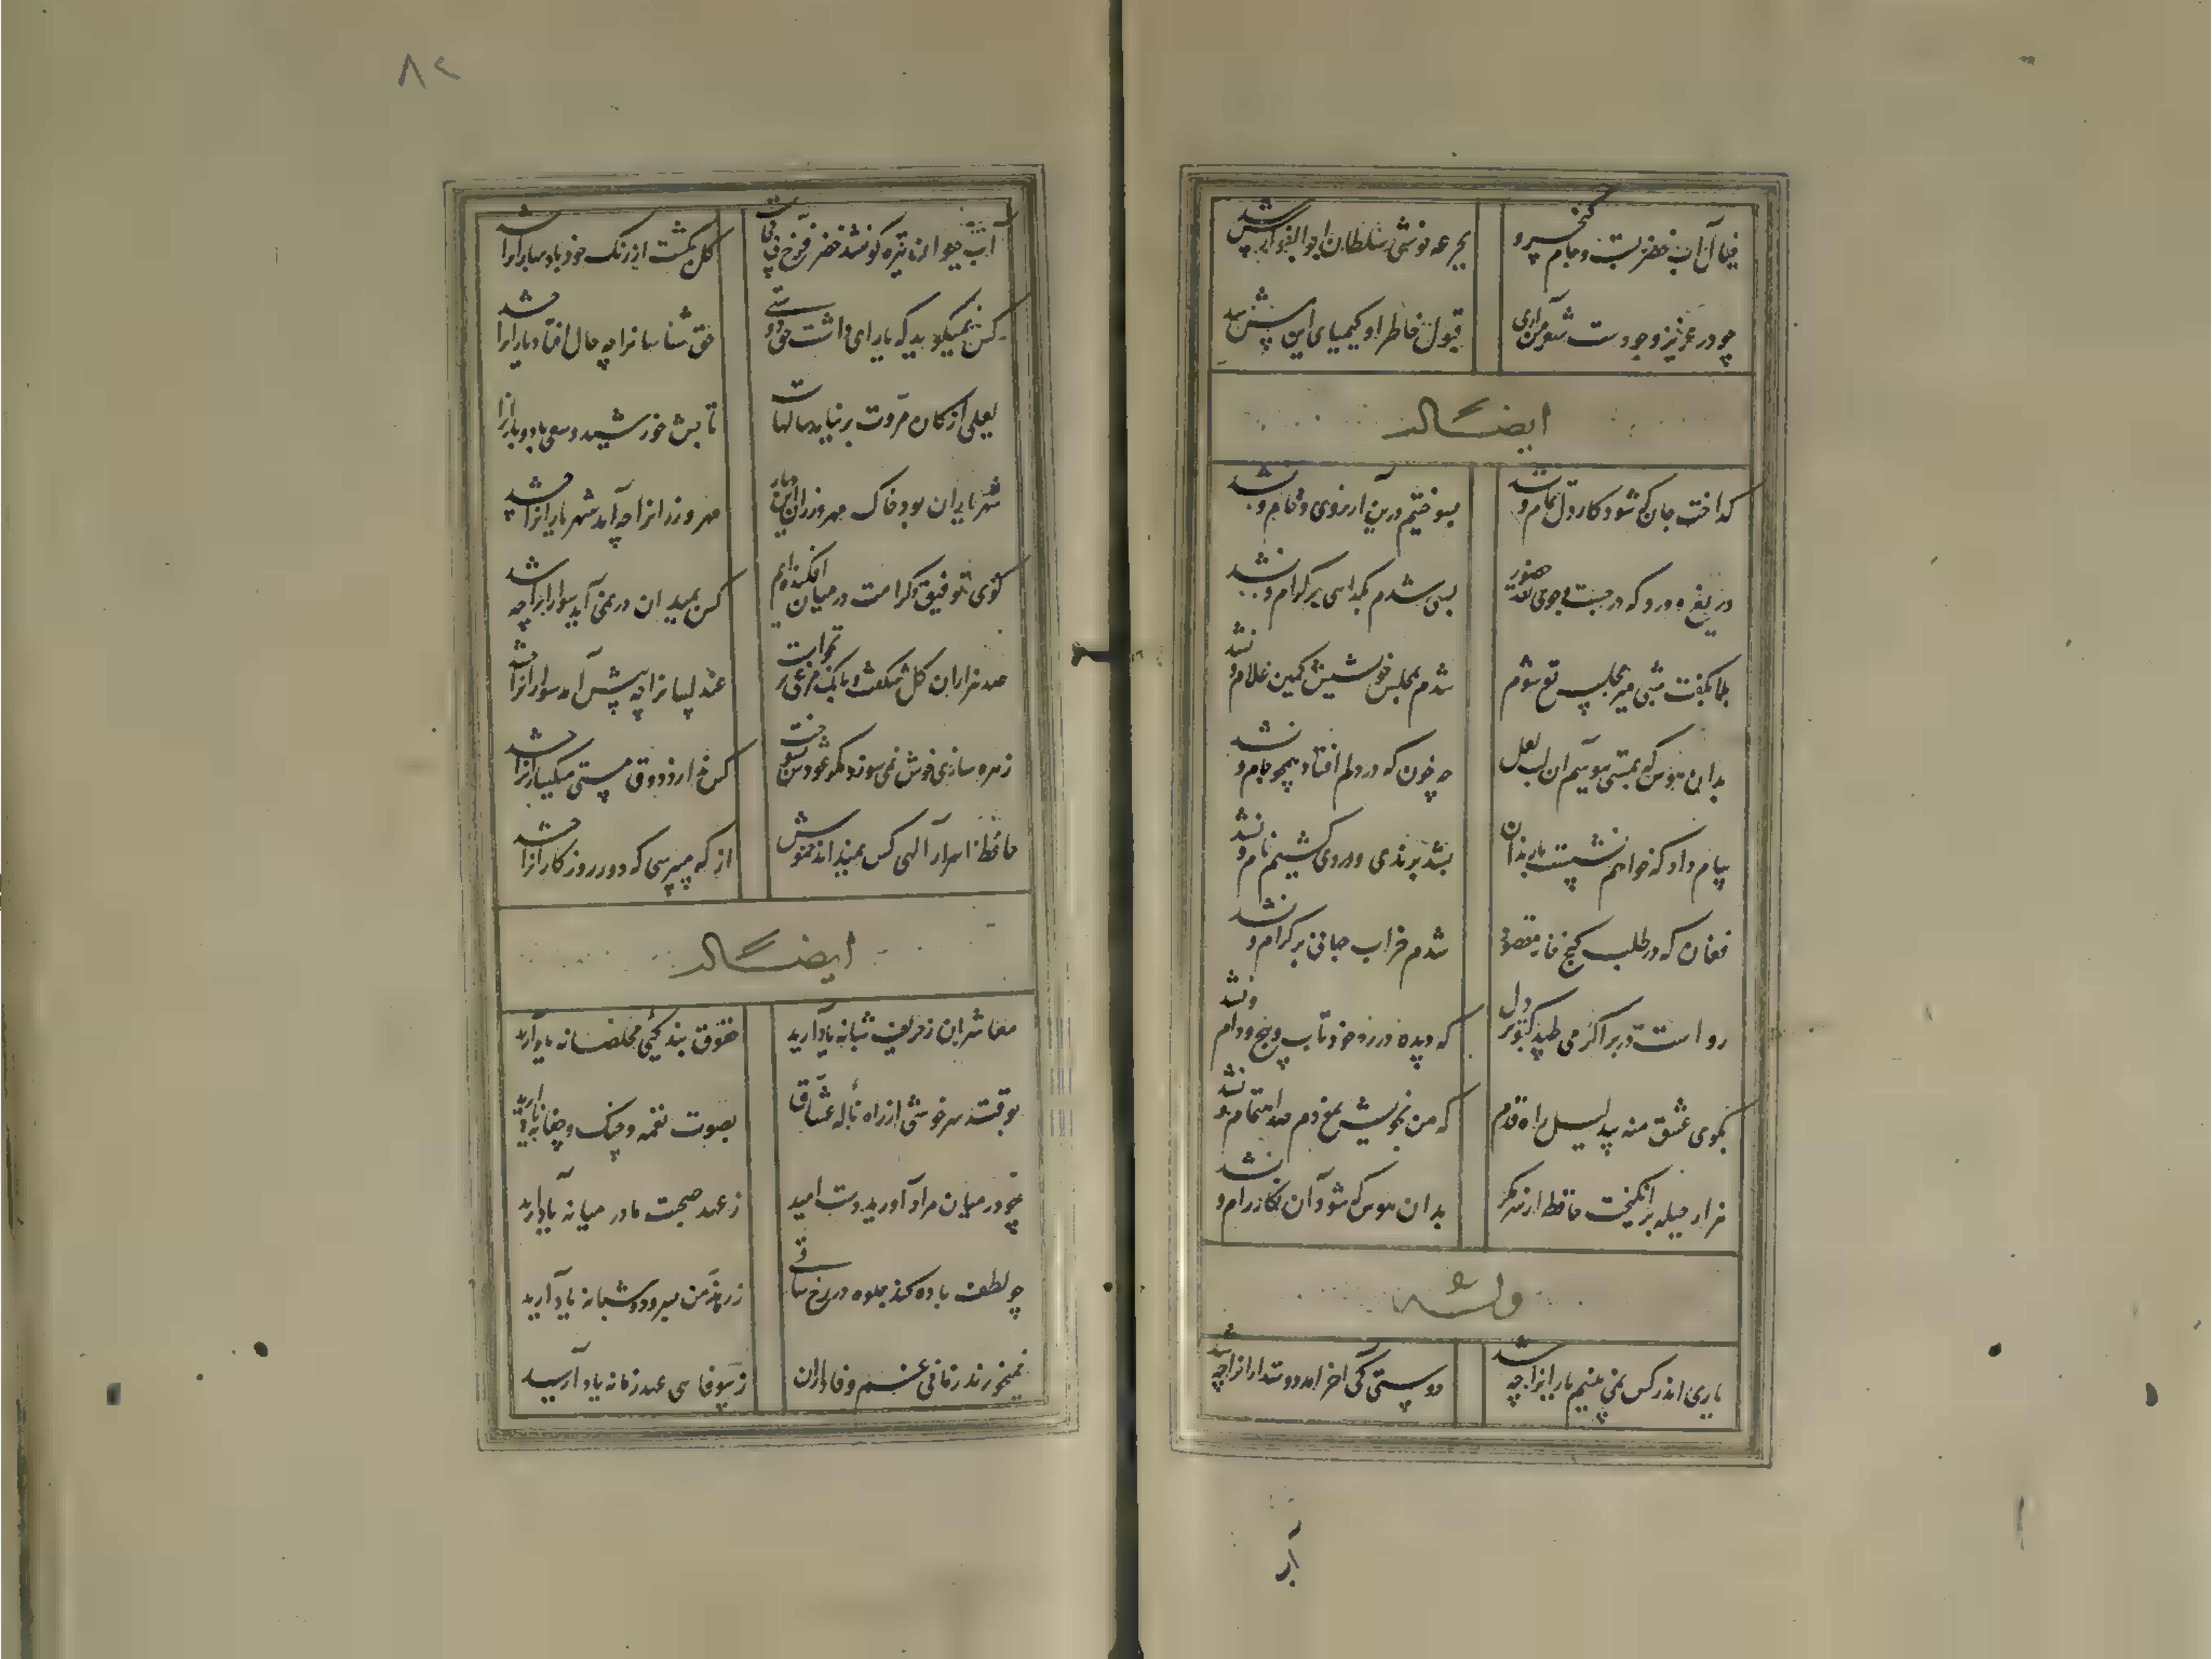 خیال آب خضر بست و جام کیخسرو
بجرعه نوشی سلطان ابوالفوارس شد
چو زر عزیز وجودست شعر من آری
قبول خاطر او کیمیای این مس شد
ایضاً له
گداخت جان که شود کار دل تمام و نشد
بسوختیم درین آرزوی خام و نشد
دریغ و درد که در جست و جوی حضور
بسی شدم بگدایی بر کرام و نشد
بلابه گفت شبی میر مجلس تو شوم
شدم بمجلس خویش کمین غلام و نشد
بدان هوس که بمستی ببوسم آن لب لعل
چه خون که در دلم افتاد همچو جام و نشد
پیام داد که خواهم نشست با رندان
بشد برندی و دردی کشیم نام و نشد
فغان که در طلب گنج نامه مقصود
شدم خراب جهانی بر کرام و نشد
رواست در بر اگر می طپد کبوتر دل
که دیده در ره خود تاب و پیچ و دام و نشد
بکوی عشق منه بی دلیل راه قدم
که من بخویش نمودم صد اهتمام و نشد
هزار حیله برانگیخت حافظ از سر مکر
بدان هوس که شود آن نگار رام و نشد
وله
یاری اندر کس نمی بینم یارانرا چه شد
دوستی کی آخر آمد دوستدارانرا چه شد
آب
۸۲
آب حیوان تیره گون شد خضر فرخ پی کجاست
گل بگشت از رنگ خود باد بهارانرا چه شد
کس نمیگوید که یاری داشت حق دوستی
حق شناسانرا چه حال افتاد یارانرا چه شد
لعلی از کان مروت برنیامد سالهاست
تابش خورشید و سعی باد و بارانرا
شهر یاران بود و خاک مهربانان این دیار
مهر ورزانرا چه آمد شهریارانرا چه شد
گوی توفیق و کرامت در میان افکنده‌ایم
کس بمیدان در نمی آید سوارانرا چه شد
صد هزاران گل شکفت و بانگ مرغی بر نخواست
عندلیبانرا چه پیش آمد هزارانرا چه شد
زهره سازی خوش نمی سوزد مگر عودش بسوخت
کس ندارد ذوق مستی میگسارانرا چه شد
حافظ اسرار الهی کس نمیداند خموش
از که میپرسی که دور روزگارانرا چه شد
ایضاً له
معاشران ز حریف شبانه یاد آرید
حقوق بندگی مخلصانه یاد آرید
بوقت سرخوشی از راه ناله عشاق
بصوت نغمه و چنگ و چغانه یاد آرید
چو در میان مراد آورید دست امید
ز عهد صحبت ما در میانه یاد آرید
چو لطف باده کند جلوه در رخ ساقی
ز رندمن بسرود شبانه یاد آرید
نمیخورند زمانی غم وفاداران
ز بیوفایی عهد زمانه یاد آرید